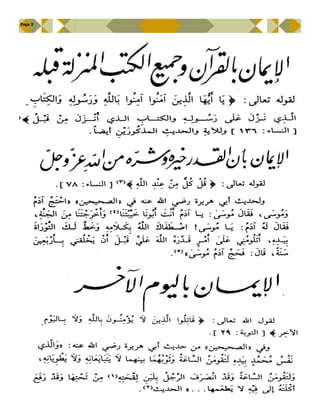 Page 3
الإيمان بالقرآن وجميع الكتب المنزلة قبله
لقوله تعالى: ﴿ يَا أَيُّهَا الَّذِينَ آمَنُوا آمِنُوا بِاللَّهِ وَرَسُولِهِ وَالْكِتَابِ
الَّذِي نَزَّلَ عَلَى رَسُولِهِ وَالْكِتَابِ الَّذِي أَنْزَلَ مِنْ قَبْلُ ﴾
[ النساء: ١٣٦ ] وللآية والحديث المذكورَيْنِ أيضاً.
الإيمان بأن القدر خيره وشره من الله عز وجل
لقوله تعالى: ﴿ قُلْ كُلٌّ مِنْ عِنْدِ اللَّهِ ﴾(٣) [ النساء: ٧٨ ].
ولحديث أبي هريرة رضي الله عنه في «الصحيحين» «احْتَجَّ آدَمُ
وَمُوسَى، فَقَالَ مُوسَى: يا آدَمُ أَنْتَ أَبُونَا خَيَّبْتَنَا(٤) وَأَخْرَجْتَنَا مِنَ الجَنَّةِ،
فَقَالَ لَهُ آدَمُ: يَا مُوسَى! اصْطَفَاكَ اللَّهُ بِكَلَامِهِ وَخَطَّ لَكَ التَّوْرَاةَ
بِيَدِهِ، أَتَلُومُنِي عَلَى أَمْرٍ قَدَّرَهُ اللَّهُ عَلَيَّ قَبْلَ أَنْ يخلُقَني بِأَرْبَعِينَ
سَنَةً، قَالَ: فَحَجَّ آدَمُ مُوسَى»(٥).
الإيمان باليوم الآخر
لقول الله تعالى: ﴿ قَاتِلُوا الَّذِينَ لَا يُؤْمِنُونَ بِاللَّهِ وَلَا بِالْيَوْمِ
الآخِرِ ﴾ [ التوبة: ٢٩ ].
وفي «الصحيحين» من حديث أبي هريرة رضي الله عنه: «وَالَّذي
نَفْسُ مُحَمَّدٍ بِيَدِهِ لَتَقُومَنَّ السَّاعَةُ وَثَوْبُهُمَا بينهما لَا يَتَبَايَعَانِهِ وَلَا يَطْوِيَانِهِ،
وَلَتَقُومَنَّ السَّاعَةُ وَقَدْ انْصَرَفَ الرَّجُلُ بِلَبَنِ لِقْحَتِهِ(١) مِنْ تَحْتِهَا وَقَدْ رَفَعَ
أُكْلَتَهُ إلى فِيْهِ لا يَطْعَمها...» الحديث(٢).